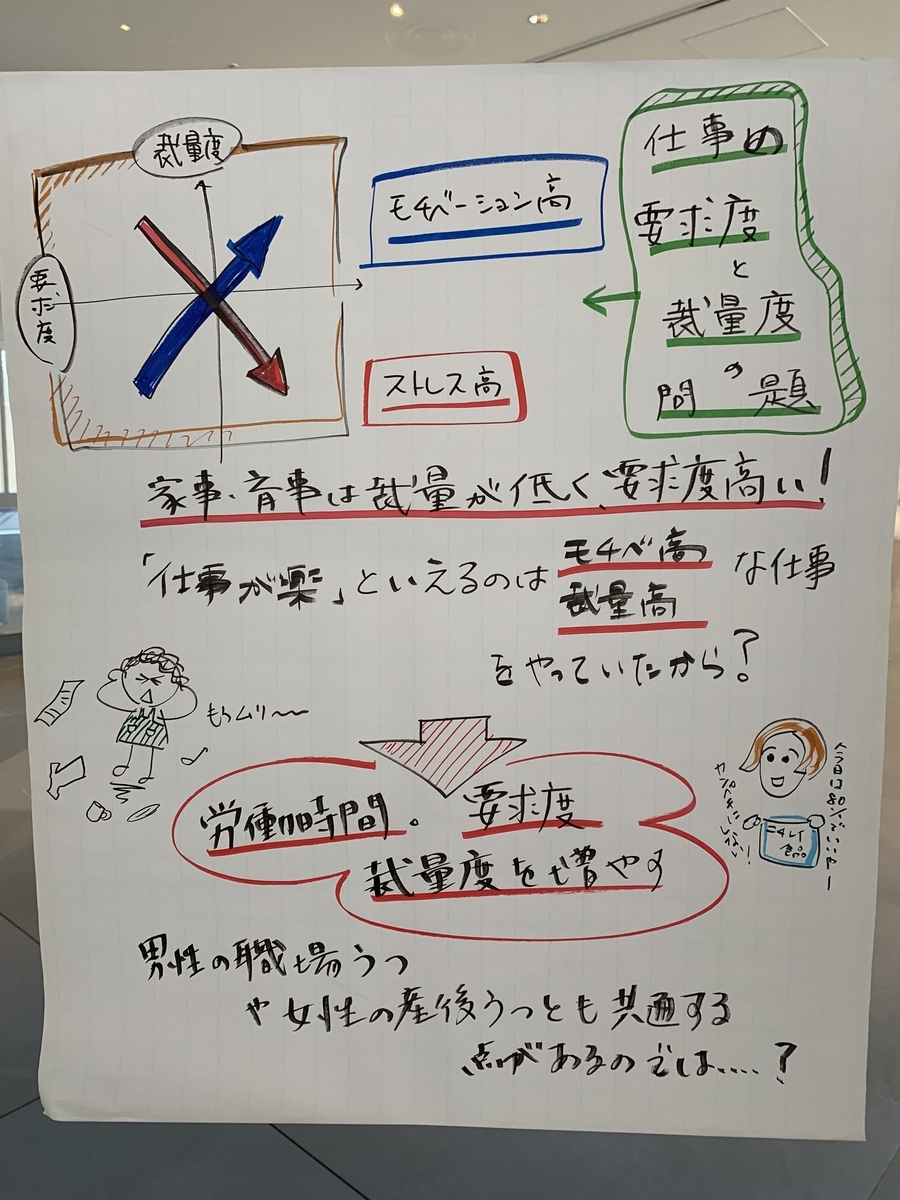 裁量度
要求度
モチベーション高
ストレス高
仕事の
要求度
と
裁量度
の
問題
家事・育事は裁量が低く、要求度高い!
「仕事が楽」といえるのは
モチベ高
裁量高
な仕事
をやっていたから?
もうムリ〜〜
労働時間。要求度
裁量度を増やす
今日は80%でいいやー
カンペキじゃない!
ニチレイ
食品
男性の職場うつ
や女性の産後うつとも共通する
点があるのでは……?